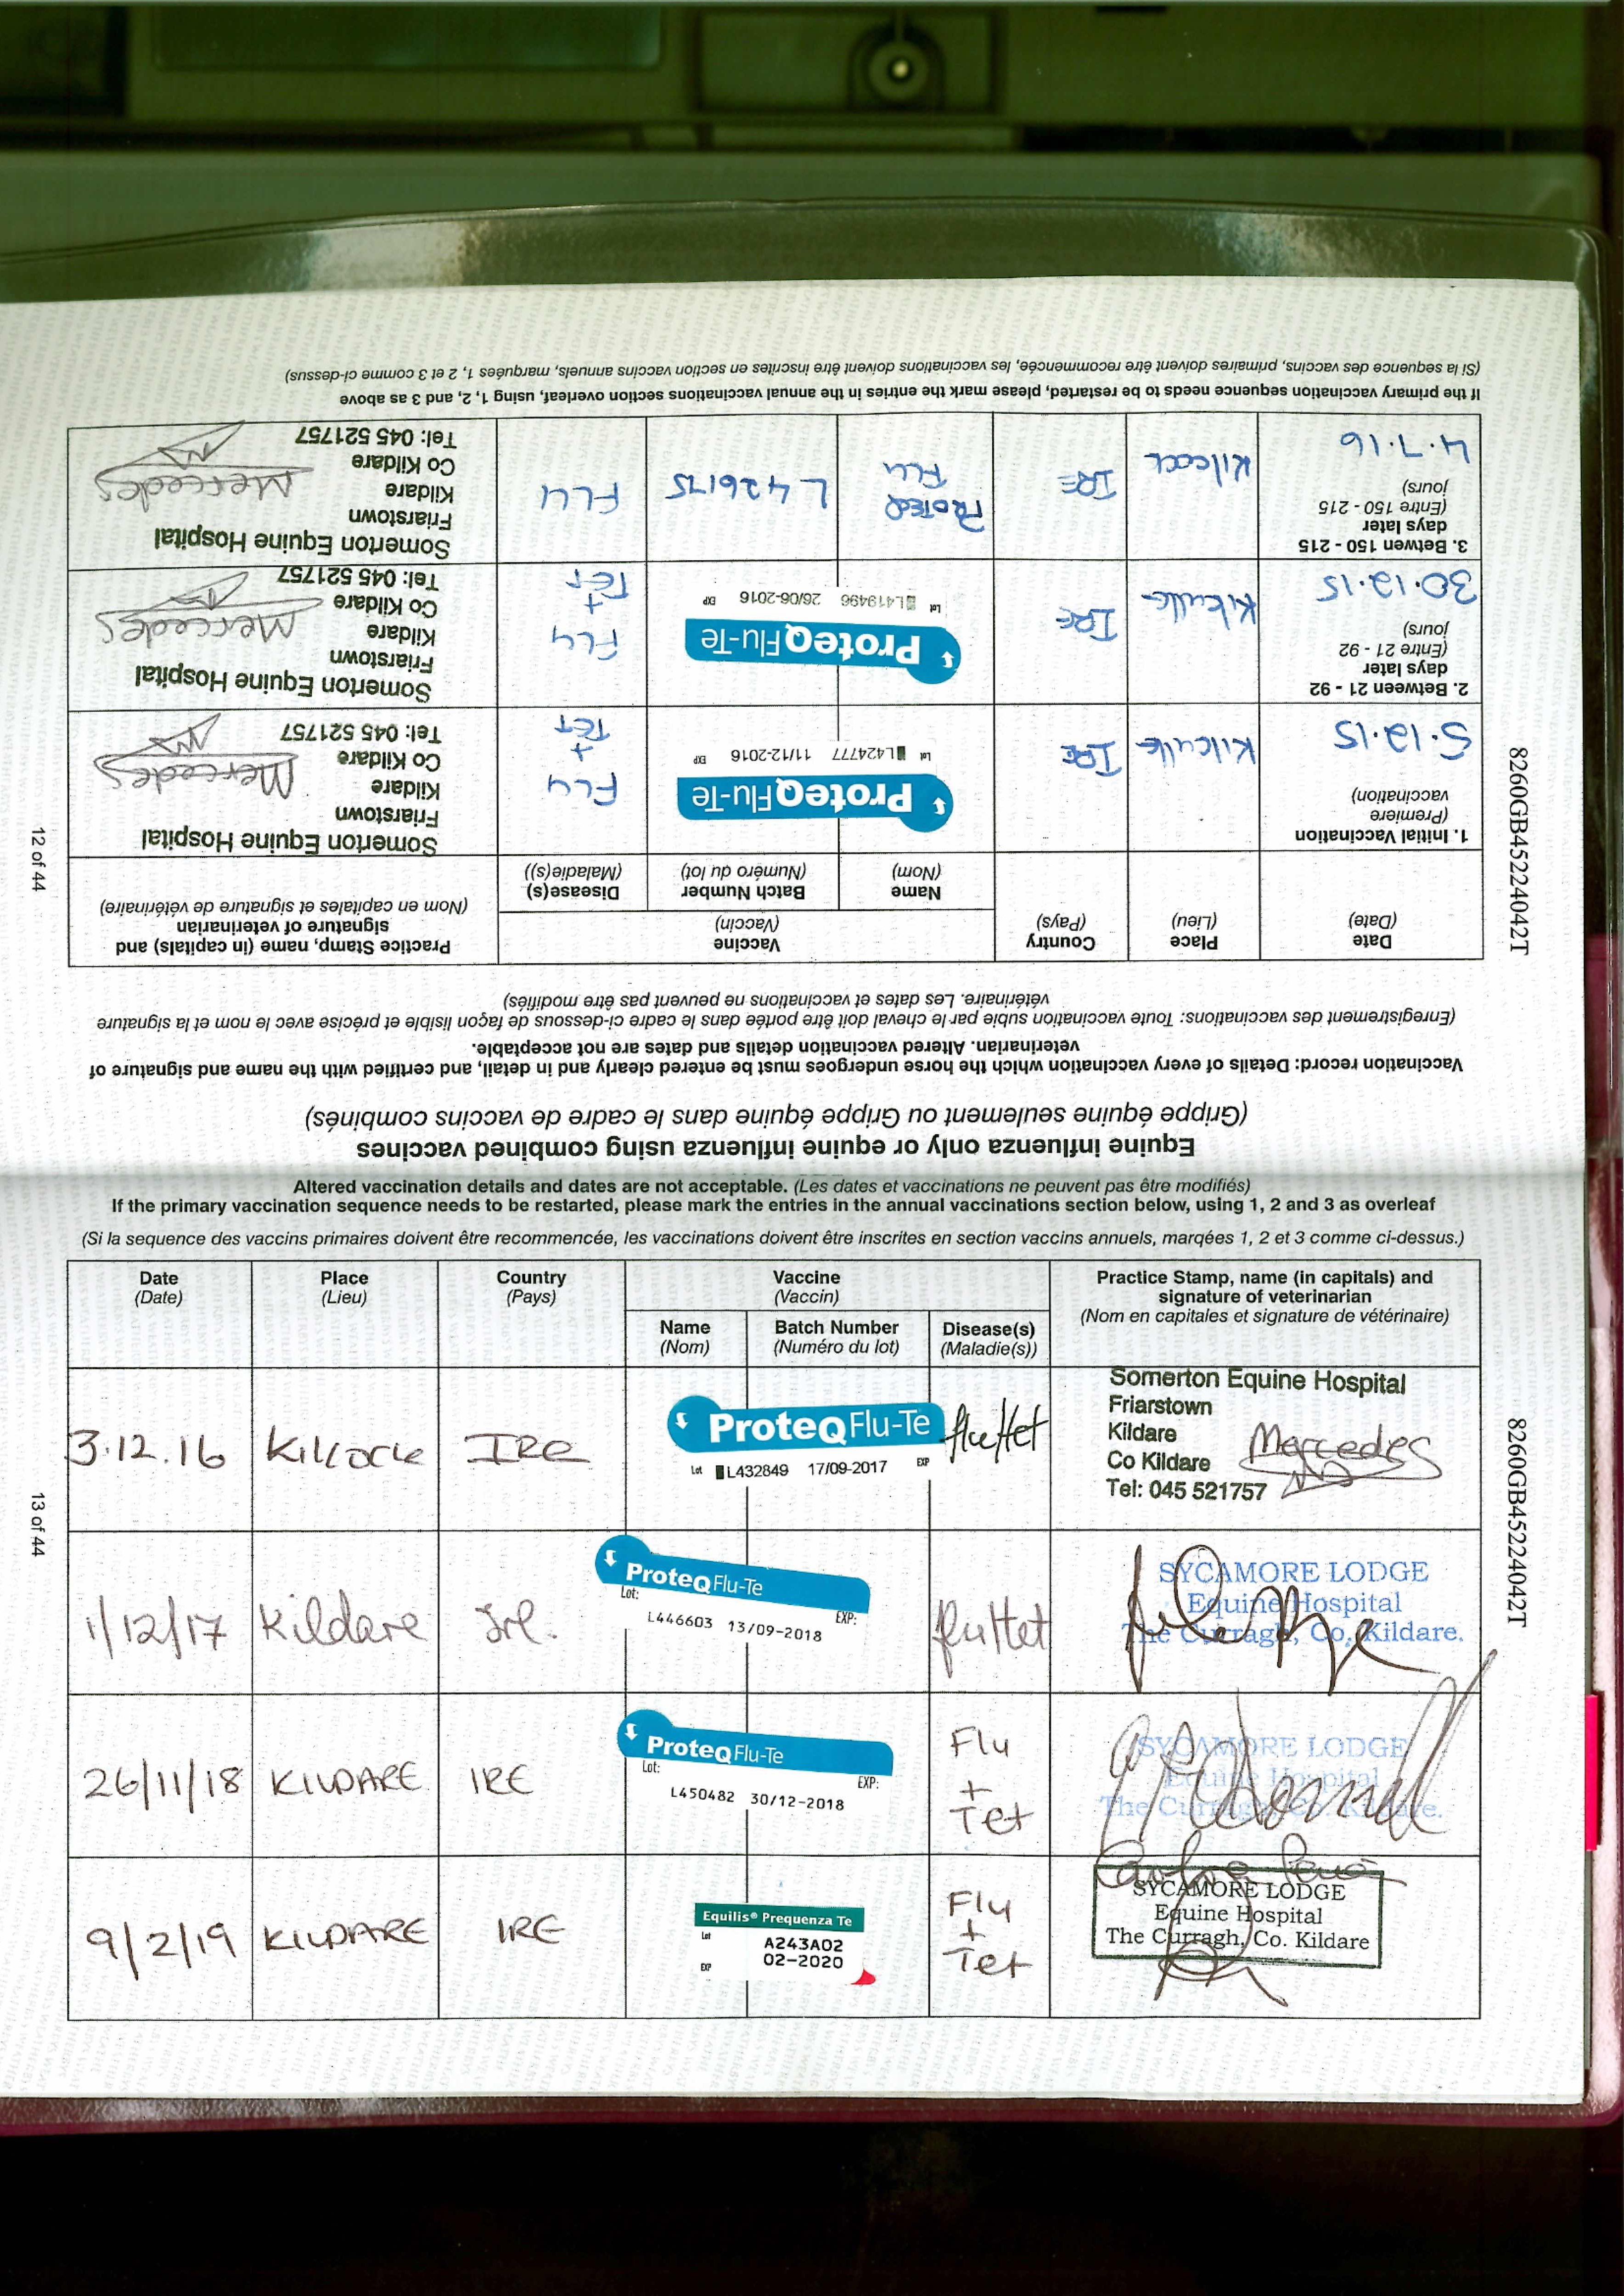 Equine influenza only or equine influenza using combined vaccines
(Grippe équine seulement ou Grippe équine dans le cadre de vaccins combinés)
Vaccination record: Details of every vaccination which the horse undergoes must be entered clearly and in detail, and certified with the name and signature of
veterinarian. Altered vaccination details and dates are not acceptable.
(Enregistrement des vaccinations: Toute vaccination subie par le cheval doit être portée dans le cadre ci-dessous de façon lisible et précise avec le nom et la signature
vétérinaire. Les dates et vaccinations ne peuvent pas être modifiés)
Date
(Date)
Place
(Lieu)
Country
(Pays)
Vaccine
(Vaccin)
Name
(Nom)
Batch Number
(Numéro du lot)
Disease(s)
(Maladie(s))
Practice Stamp, name (in capitals) and
signature of veterinarian
(Nom en capitales et signature de vétérinaire)
1. Initial Vaccination
(Premiere
vaccination)
5.12.15
Kilcullen
IRE
ProteqFlu-Te
Lot L424777 11/12-2016 EXP
FLU
+
TET
Somerton Equine Hospital
Friarstown
Kildare
Co Kildare
Tel: 045 521757
Mercedes
2. Between 21 - 92
days later
(Entre 21 - 92
jours)
30.12.15
Kilcullen
IRE
ProteqFlu-Te
Lot L419496 26/06-2016 EXP
FLU
+
TET
Somerton Equine Hospital
Friarstown
Kildare
Co Kildare
Tel: 045 521757
Mercedes
3. Betwen 150 - 215
days later
(Entre 150 - 215
jours)
4.7.16
Kilcock
IRE
PROTEQ
FLU
L426175
FLU
Somerton Equine Hospital
Friarstown
Kildare
Co Kildare
Tel: 045 521757
Mercedes
If the primary vaccination sequence needs to be restarted, please mark the entries in the annual vaccinations section overleaf, using 1, 2, and 3 as above
(Si la sequence des vaccins, primaires doivent être recommencée, les vaccinations doivent être inscrites en section vaccins annuels, marquées 1, 2 et 3 comme ci-dessus)
8260GB45224042T
12 of 44
Altered vaccination details and dates are not acceptable. (Les dates et vaccinations ne peuvent pas être modifiés)
If the primary vaccination sequence needs to be restarted, please mark the entries in the annual vaccinations section below, using 1, 2 and 3 as overleaf
(Si la sequence des vaccins primaires doivent être recommencée, les vaccinations doivent être inscrites en section vaccins annuels, marqées 1, 2 et 3 comme ci-dessus.)
Date
(Date)
Place
(Lieu)
Country
(Pays)
Vaccine
(Vaccin)
Name
(Nom)
Batch Number
(Numéro du lot)
Disease(s)
(Maladie(s))
Practice Stamp, name (in capitals) and
signature of veterinarian
(Nom en capitales et signature de vétérinaire)
3.12.16
Kilcock
IRE
ProteqFlu-Te
Lot L432849 17/09-2017 EXP
flu/tet
Somerton Equine Hospital
Friarstown
Kildare
Co Kildare
Tel: 045 521757
Mercedes
1/12/17
Kildare
Irl.
ProteqFlu-Te
Lot: EXP:
L446603 13/09-2018
flu/tet
SYCAMORE LODGE
Equine Hospital
The Curragh, Co. Kildare.
26/11/18
KILDARE
IRE
ProteqFlu-Te
Lot: EXP:
L450482 30/12-2018
Flu
+
Tet
SYCAMORE LODGE
Equine Hospital
The Curragh, Co. Kildare.
9/2/19
KILDARE
IRE
Equilis® Prequenza Te
Lot A243A02
EXP 02-2020
Flu
+
Tet
SYCAMORE LODGE
Equine Hospital
The Curragh, Co. Kildare
8260GB45224042T
13 of 44